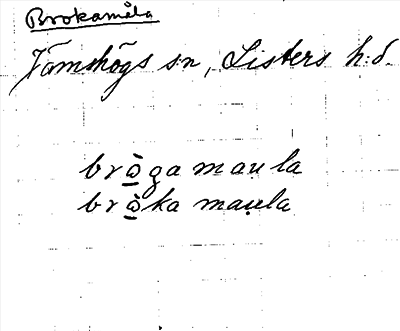 Brokamåla
Jämshögs sn, Listers h:d.
brò̲ga maula
brò̲ka maṷla